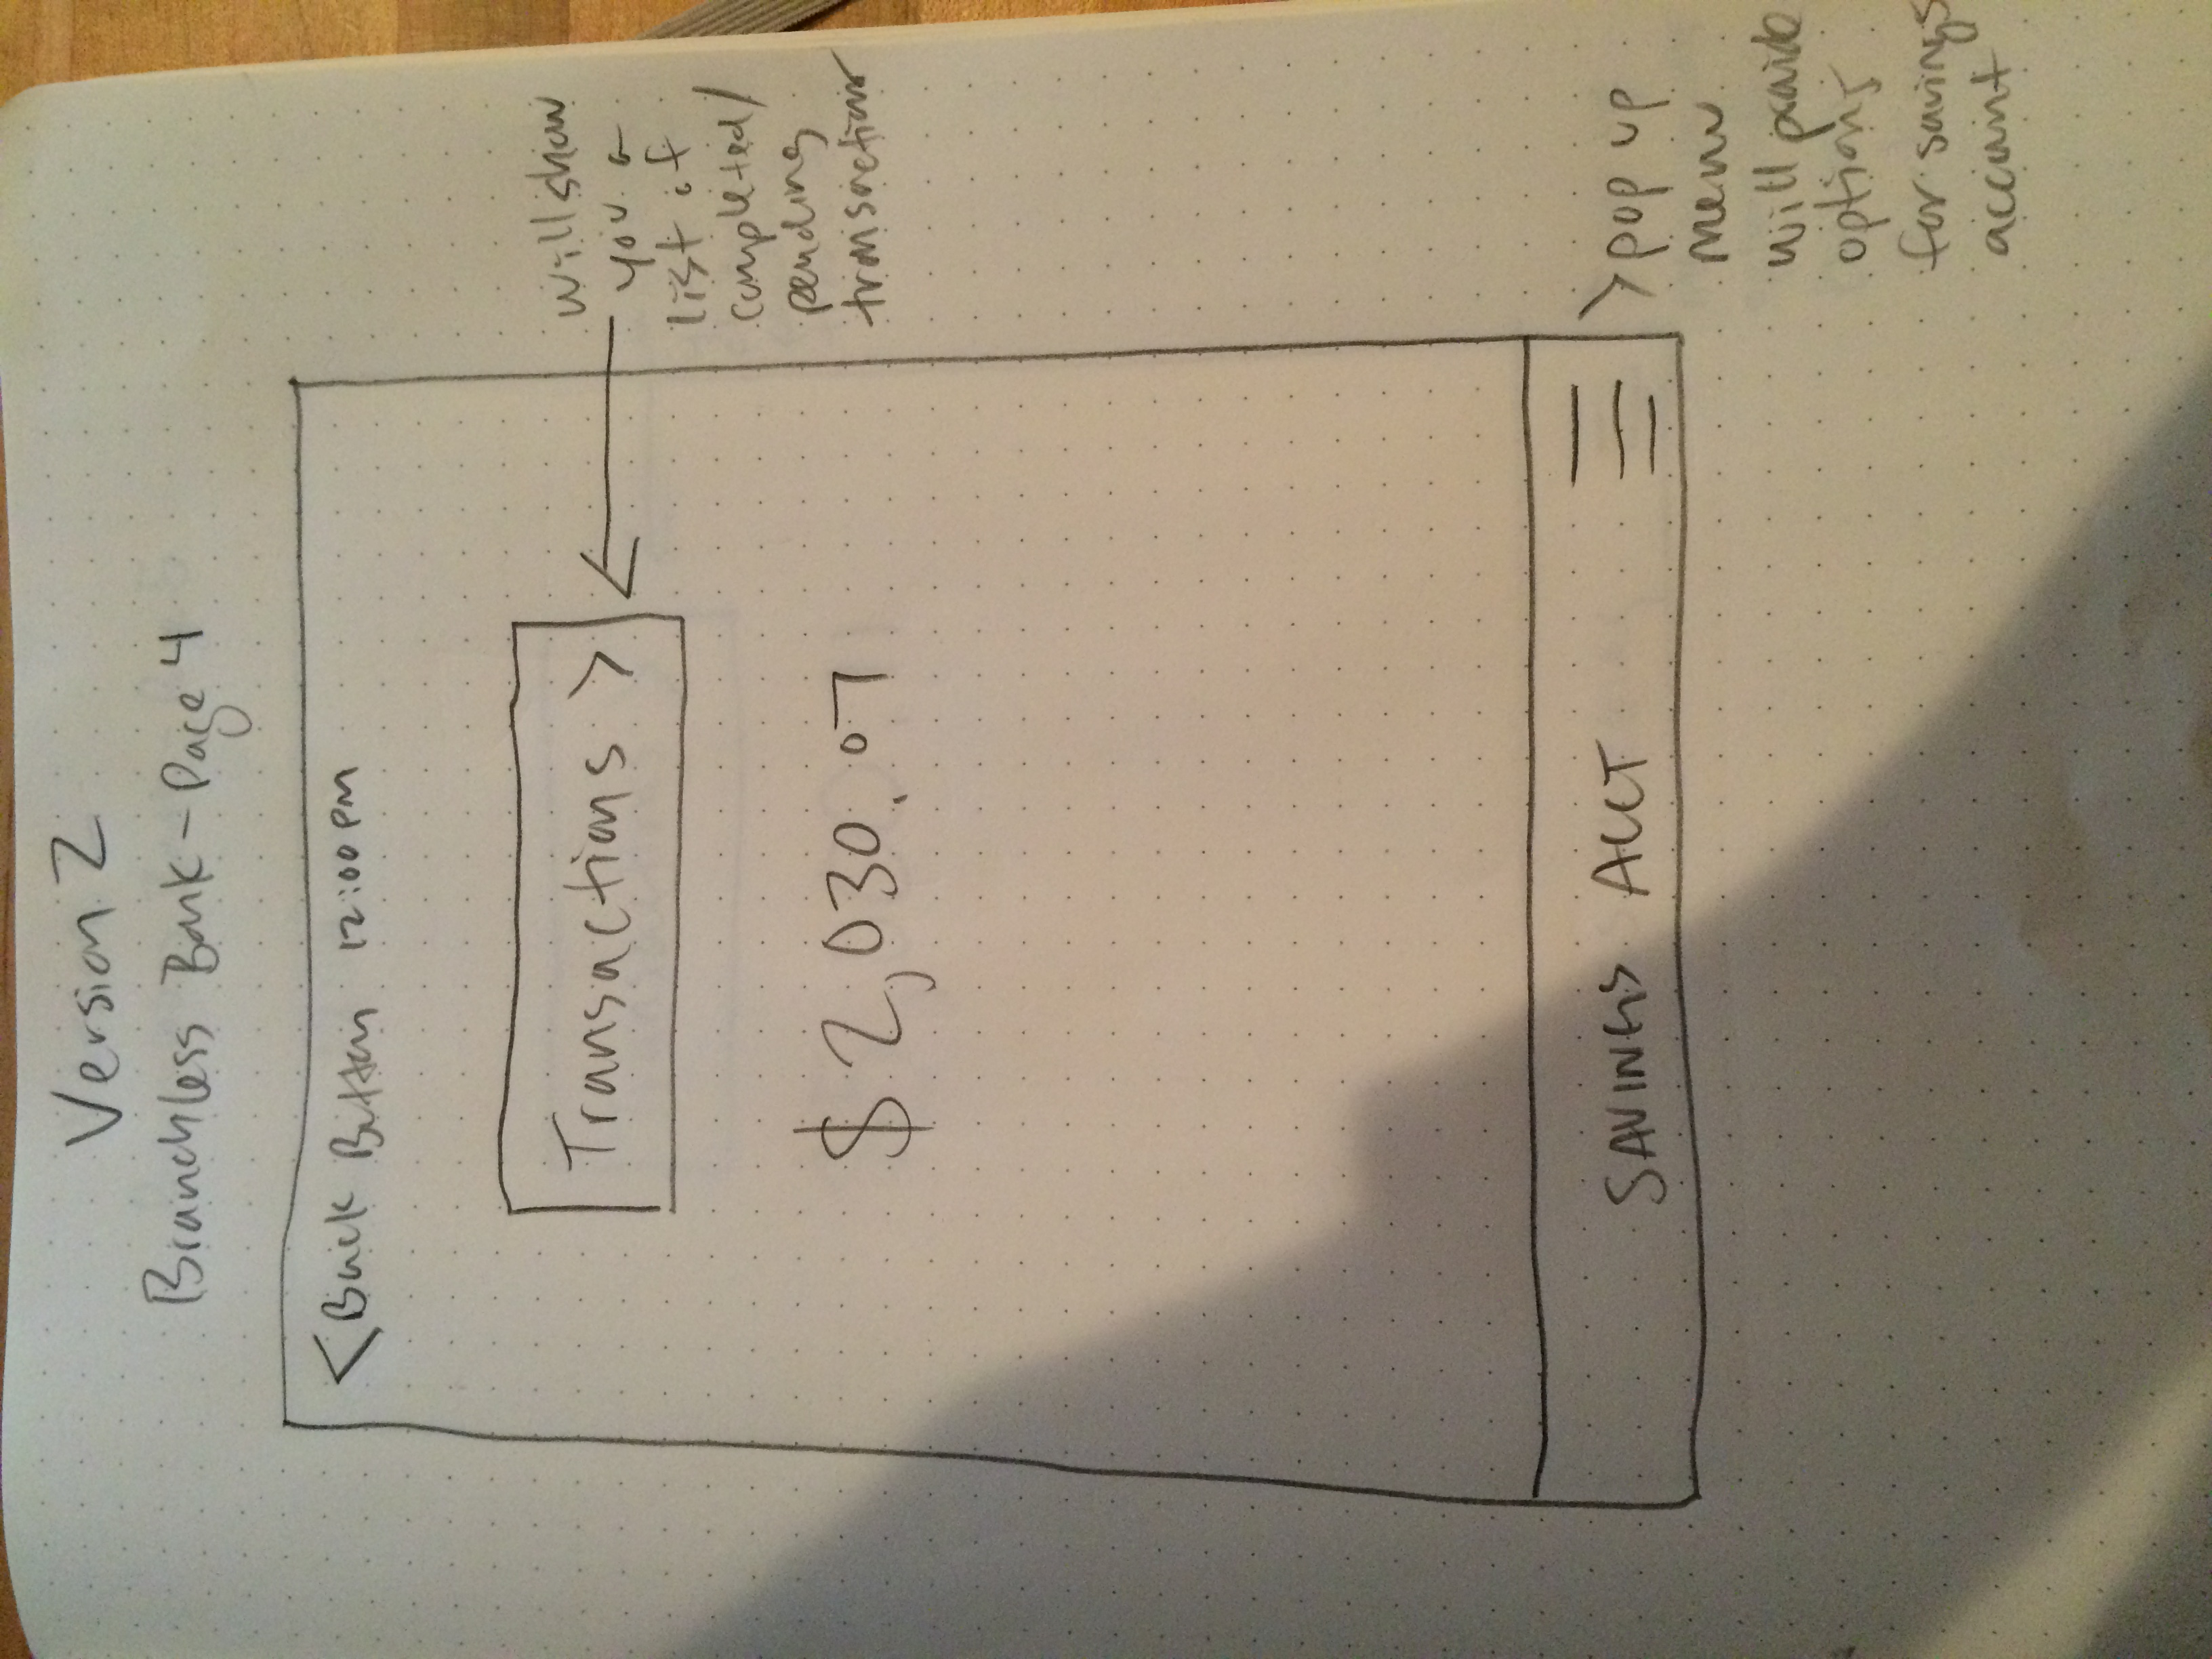 Version 2
Branchless Bank - Page 4
< Back Button 12:00 PM
Transactions >
will show
you a
list of
completed/
pending
transactions
$2,030.07
SAVINGS ACCT
> pop up
menu
will provide
options
for savings
account